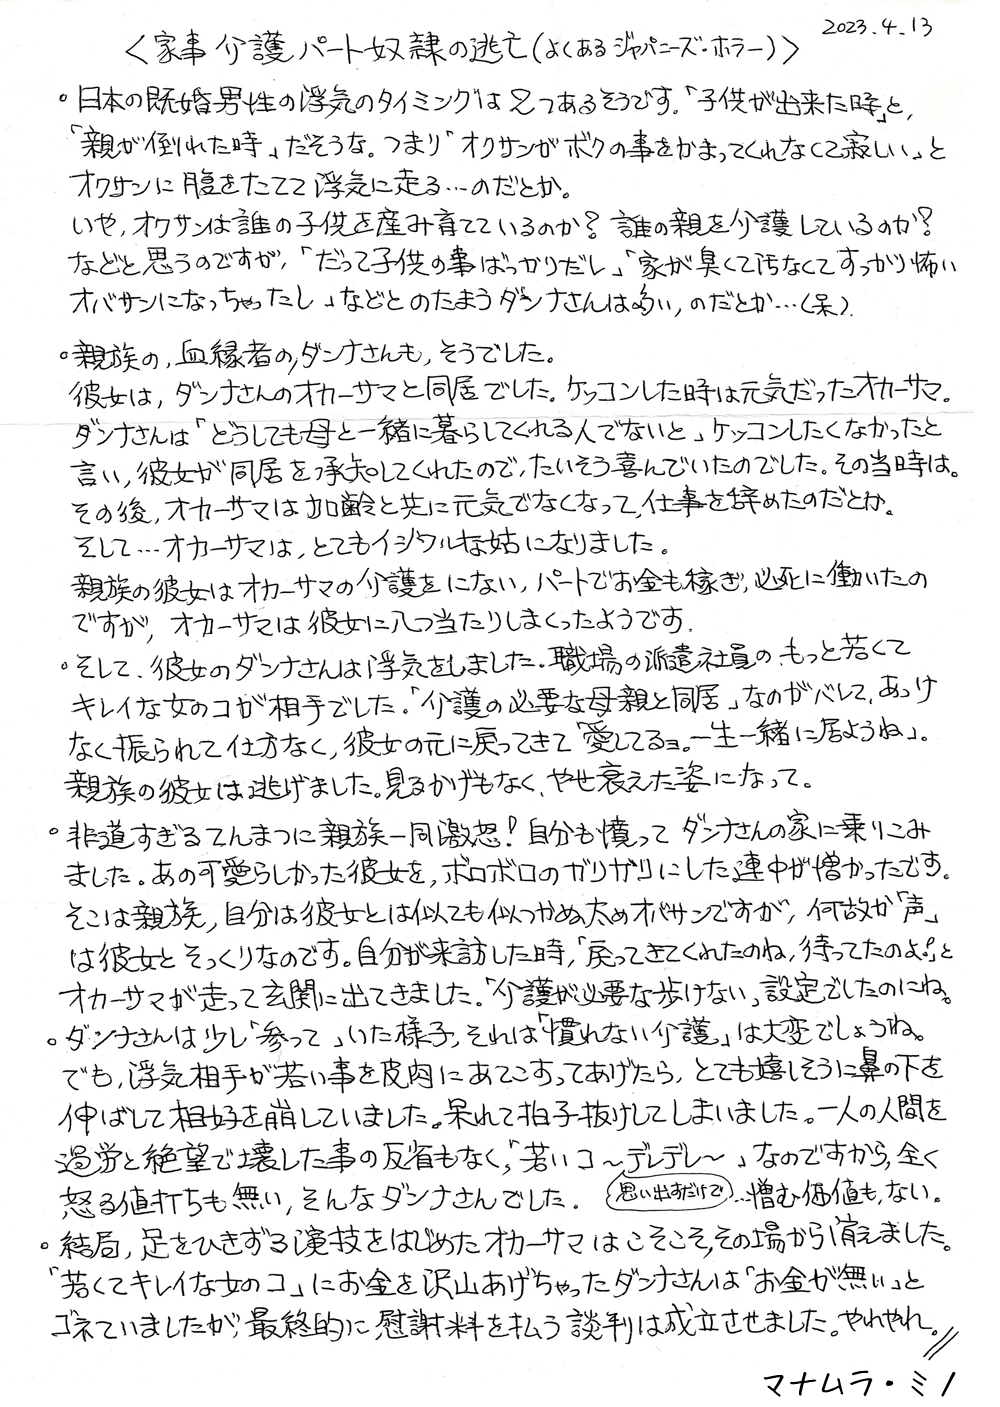 2023.4.13
〈家事介護パート奴隷の逃亡(よくあるジャパニーズ・ホラー)〉
。日本の既婚男性の浮気のタイミングは2つあるそうです。「子供が出来た時」と、
「親が倒れた時」だそうな。つまり「オクサンがボクの事をかまってくれなくて寂しい」と
オクサンに腹をたてて浮気に走る…のだとか。
いや、オクサンは誰の子供を産み育てているのか?誰の親を介護しているのか?
などと思うのですが、「だって子供の事ばっかりだし」「家が臭くて汚なくてすっかり怖い
オバサンになっちゃったし」などとのたまうダンナさんは多い、のだとか…(呆)。
。親族の、血縁者の、ダンナさんも、そうでした。
彼女は、ダンナさんのオカーサマと同居でした。ケッコンした時は元気だったオカーサマ。
ダンナさんは「どうしても母と一緒に暮らしてくれる人でないと」ケッコンしたくなかったと
言い、彼女が同居を承知してくれたので、たいそう喜んでいたのでした。その当時は。
その後、オカーサマは加齢と共に元気でなくなって、仕事を辞めたのだとか。
そして…オカーサマは、とてもイジワルな姑になりました。
親族の彼女はオカーサマの介護をにない、パートでお金も稼ぎ、必死に働いたの
ですが、オカーサマは彼女に八つ当たりしまくったようです。
。そして、彼女のダンナさんは浮気をしました。職場の派遣社員の、もっと若くて
キレイな女のコが相手でした。「介護の必要な母親と同居」なのがバレて、あっけ
なく振られて仕方なく、彼女の元に戻ってきて「愛してるヨ。一生一緒に居ようね」。
親族の彼女は逃げました。見るかげもなく、やせ衰えた姿になって。
。非道すぎるてんまつに親族一同激怒!自分も憤ってダンナさんの家に乗りこみ
ました。あの可愛らしかった彼女を、ボロボロのガリガリにした連中が憎かったです。
そこは親族、自分は彼女とは似ても似つかぬ太めオバサンですが、何故か「声」
は彼女とそっくりなのです。自分が来訪した時、「戻ってきてくれたのね、待ってたのよ!」と
オカーサマが走って玄関に出てきました。「介護が必要な歩けない」設定でしたのにね。
。ダンナさんは少し「参って」いた様子、それは「慣れない介護」は大変でしょうね。
でも、浮気相手が若い事を皮肉にあてこすってあげたら、とても嬉しそうに鼻の下を
伸ばして相好を崩していました。呆れて拍子抜けしてしまいました。一人の人間を
過労と絶望で壊した事の反省もなく、「若いコ〜デレデレ〜」なのですから、全く
怒る値打ちも無い、そんなダンナさんでした。(思い出すだけで)…憎む価値も、ない。
。結局、足をひきずる演技をはじめたオカーサマはこそこそ、その場から消えました。
「若くてキレイな女のコ」にお金を沢山あげちゃったダンナさんは「お金が無い」と
ゴネていましたが、最終的に慰謝料を払う談判は成立させました。やれやれ。
マナムラ・ミノ